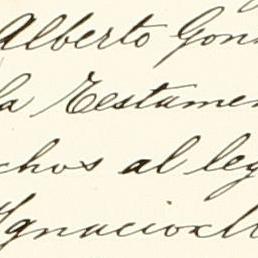 Alberto Gon
la Testamen
chos al leg
Ignacio M